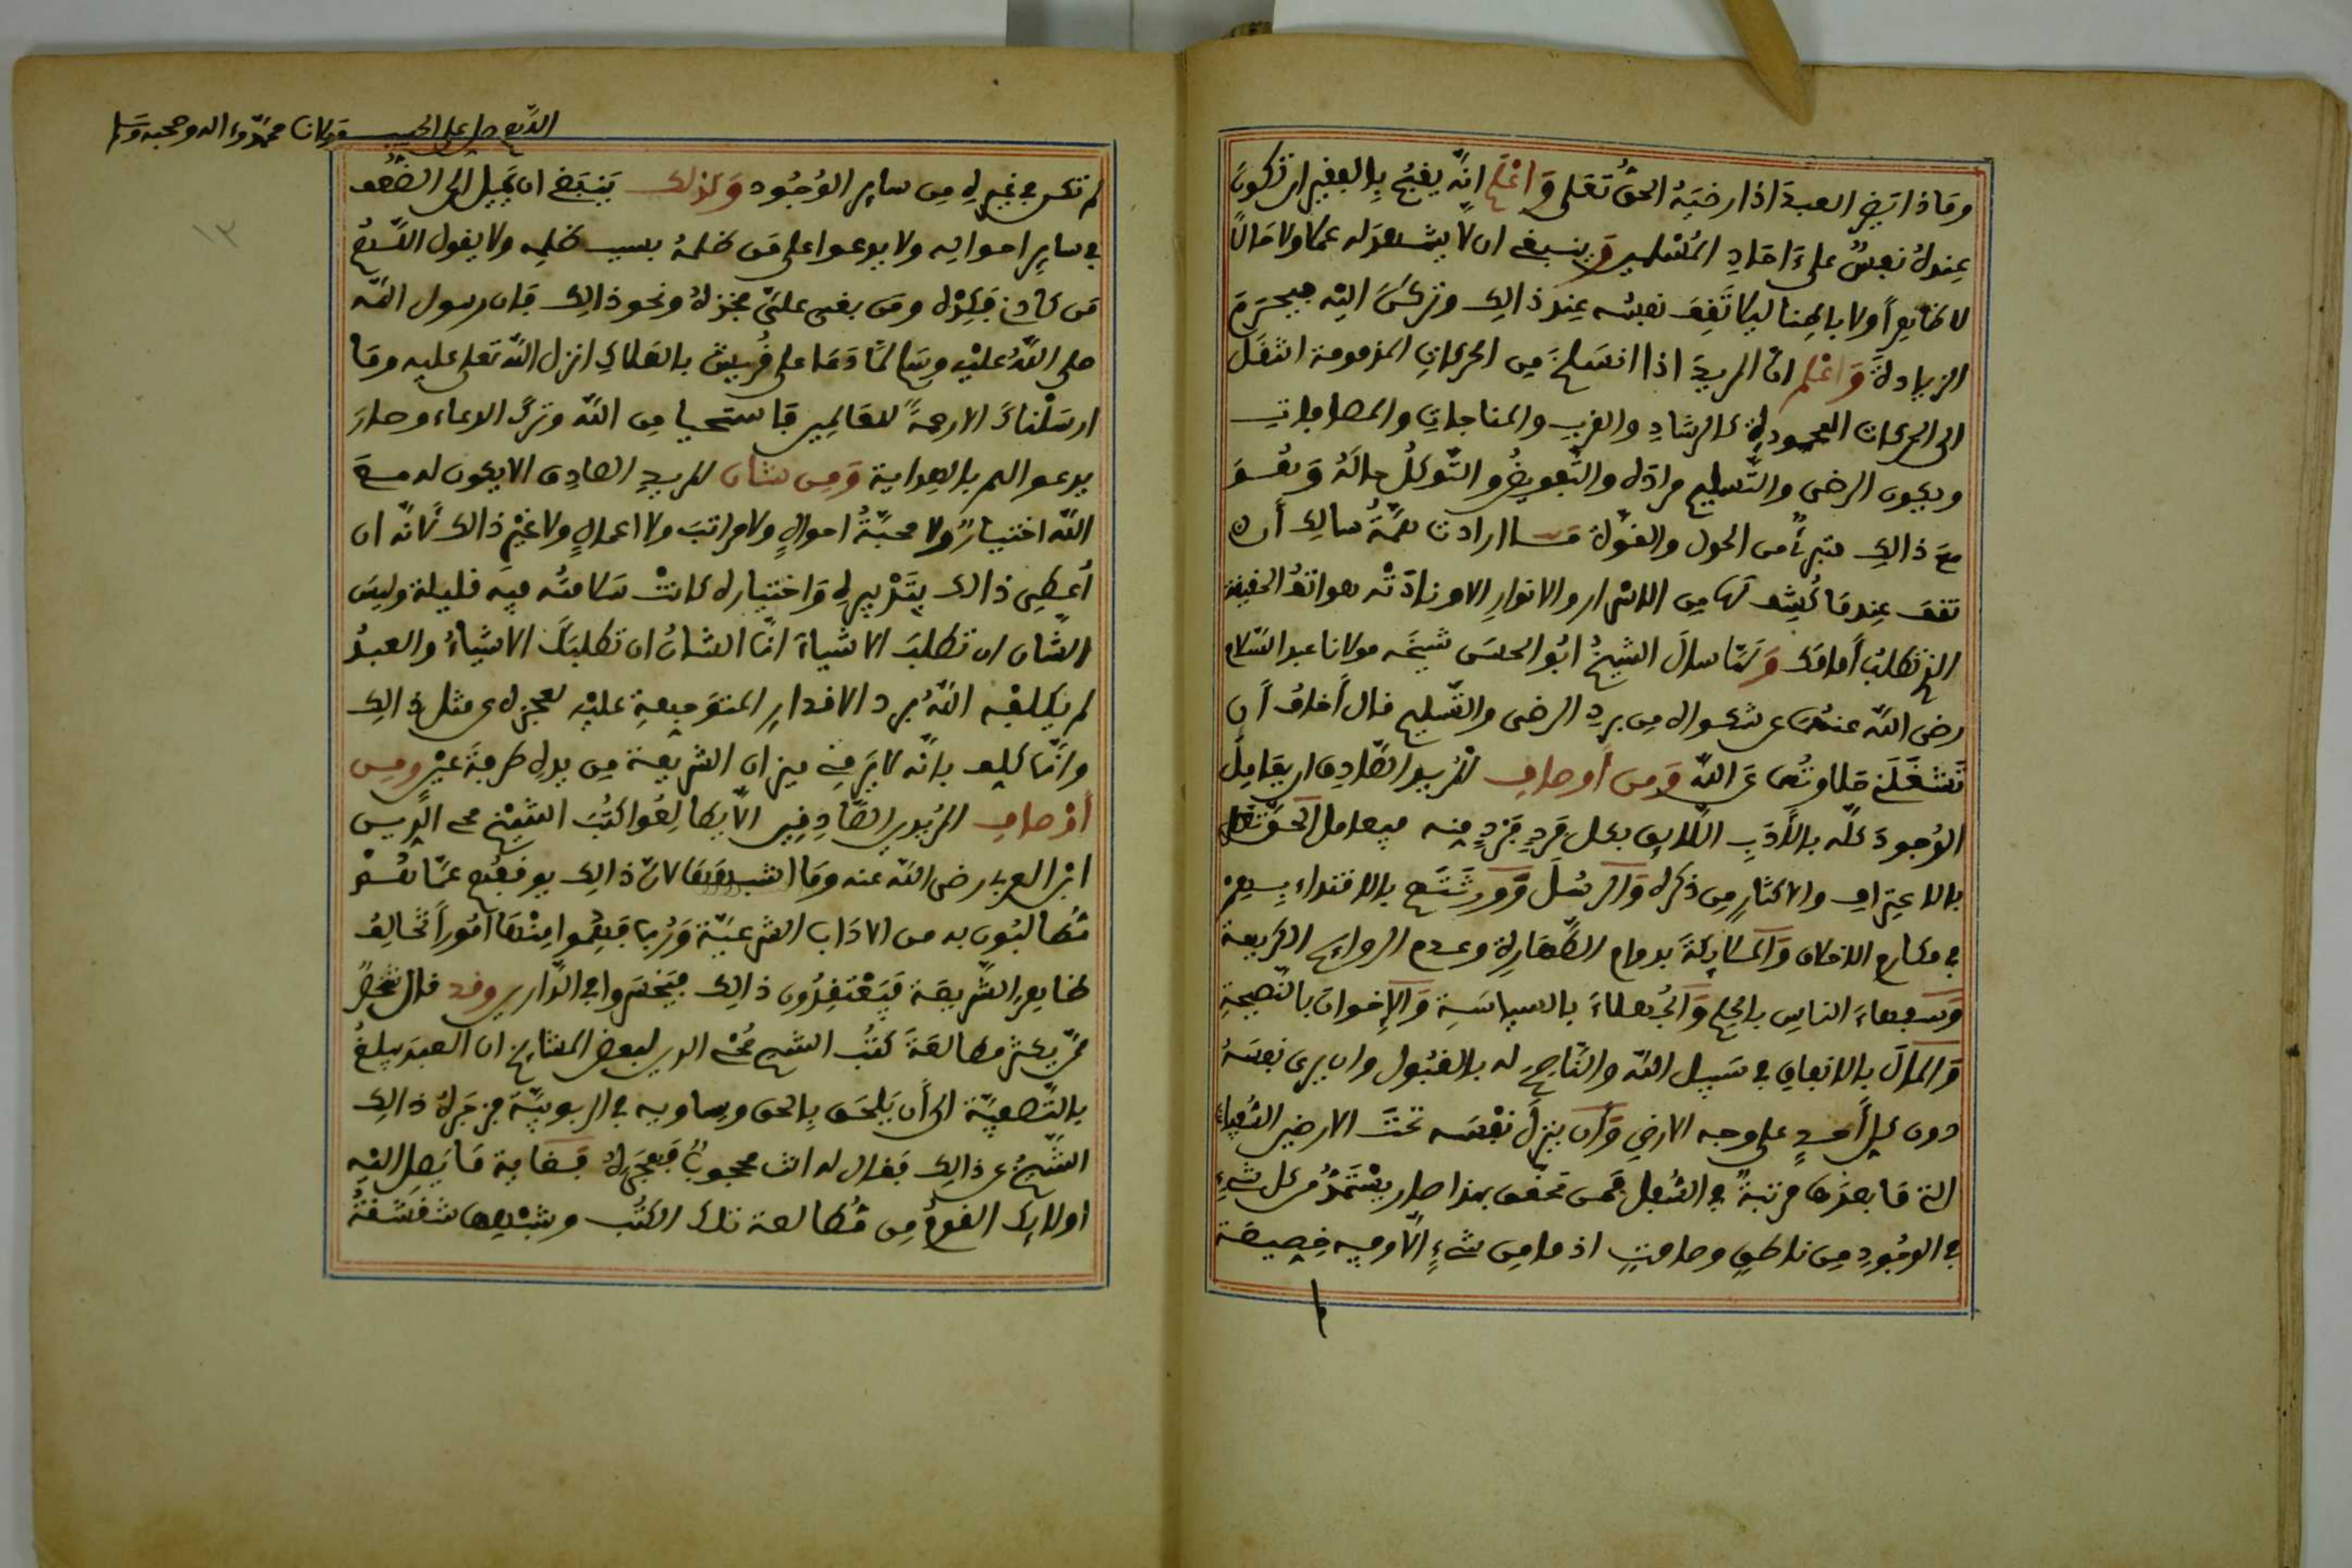 وماذا يضر العبد اذا رضيه الحق تعلى واعلم انه يقبح بالفقير ان تكون
عنده نفس على احاد المسلمين وينبغي ان لا يشهد له عملا ولا حالا
لا ظاهرا ولا باطنا ليلا تقف نفسه عند ذالك وتركن اليه فيحرم
الزيادة واعلم ان المريد اذا انسلخ من الحركات المذمومة انتقل
الى الحركات المحمودة كالرشاد والقرب والمناجات والمصافات
ويكون الرضى والتسليم مراده والتفويض والتوكل حاله وهو
مع ذالك متبرئ من الحول والقوة ما ارادت همة سالك ان
تقف عند ما كشف لها من الاسرار والانوار الا ونادته هواتف الحقيقة
الذي تطلب أمامك ولما سال الشيخ ابو الحسن شيخه مولانا عبد السلام
رضى الله عنهما عن شكواه من برد الرضى والتسليم قال أخاف أن
تشغلني حلاوتهما عن الله ومن أوصاف المريد الصادق ان يعامل
الوجود كله بالأدب اللايق بكل فرد فرد منه فيعامل الحق تعلى
بالاعتراف والاكثار من ذكره والرسل وورثتهم بالاقتداء بهم
في مكارم الاخلاق والملايكة بدوام الطهارة وعدم الروايح الكريهة
وسفهاء الناس بالحلم والجهلاء بالسياسة والإخوان بالنصيحة
والمال بالانفاق في سبيل الله والناصح له بالقبول وان يرى نفسه
دون كل أحد على وجه الارض وأن ينزل نفسه تحت الارضين السفلى
التي ما بعدها مرتبة في السفل فمن تحقق بهذا صار يستمد من كل شيء
في الوجود من ناطق وصامت اذ ما من شيء الا وفيه خصيصة
اللهم صل على الحبيب مولانا محمد وءاله وصحبه وسلم
لم تكن في غيره من ساير الوجود وكذلك ينبغي ان يميل الى الضعف
في ساير احواله ولا يدعوا على من ظلمه بسبب ظلمه ولا يقول اللهم
من كادني فكده ومن بغى علي فخذه ونحو ذالك فان رسول الله
صلى الله عليه وسلم لما دعا على قريش بالهلاك انزل الله تعلى عليه وما
ارسلناك الا رحمة للعالمين فاستحيا من الله وترك الدعاء وصار
يدعو الهم بالهداية ومن شان المريد الصادق الا يكون له مع
الله اختيار ولا محبة احوال ولا مراتب ولا اعمال ولا غير ذالك لانه ان
أعطى ذالك بتدبيره واختياره كانت سلامته فيه قليلة وليس
الشان ان تطلب الاشياء انما الشان ان تطلبك الاشياء والعبد
لم يكلفه الله برد الاقدار المتوجهة عليه لعجزه عن مثل ذالك
وانما كلف بانه لا يرمي ميزان الشريعة من يده طرفة عين ومن
أوصاف المريدين الصادقين الا يطالعوا كتب الشيخ محي الدين
ابن العربي رضى الله عنه وما اشبهها لان ذالك يوقفهم عما هم
مطالبون به من الاداب الشرعية وربما فهموا منها أمورا تخالف
ظاهر الشريعة فيعتقدون ذالك فيخسروا في الدارين وقد قال شخص
ممن يكثر مطالعة كتب الشيخ محي الدين لبعض المشايخ ان العبد يبلغ
بالتصفية الى أن يلحق بالحق ويساويه في الربوبية فزجره ذالك
الشيخ عن ذالك فقال له انت محجوب فهجره فهاذا غاية ما يصل اليه
اولايك القوم من مطالعة تلك الكتب وشبهها شقشقة
١٣